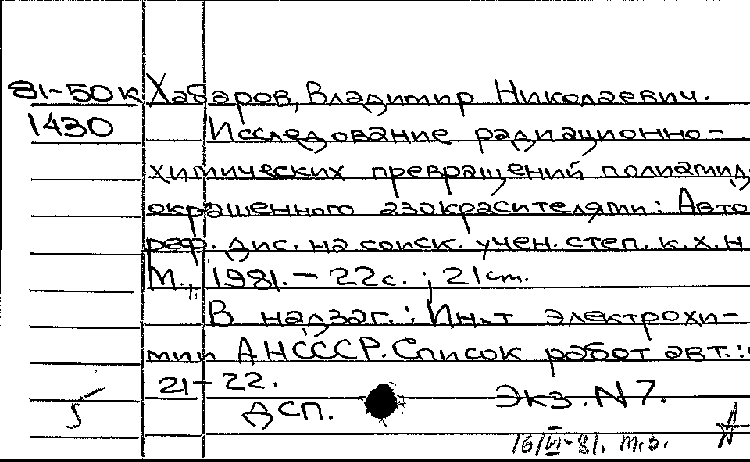 81-50к Хабаров, Владимир Николаевич.
1430 Исследование радиационно-
химических превращений полиамид
окрашенного азокрасителями: Авто
реф. дис. на соиск. учен. степ. к.х.н
М., 1981. - 22с. ; 21 см.
В надзаг.: Ин-т электрохи-
мии АН СССР. Список работ авт.:
21-22.
5 ДСП. Экз. N 7.
16/VI-81. т.з.